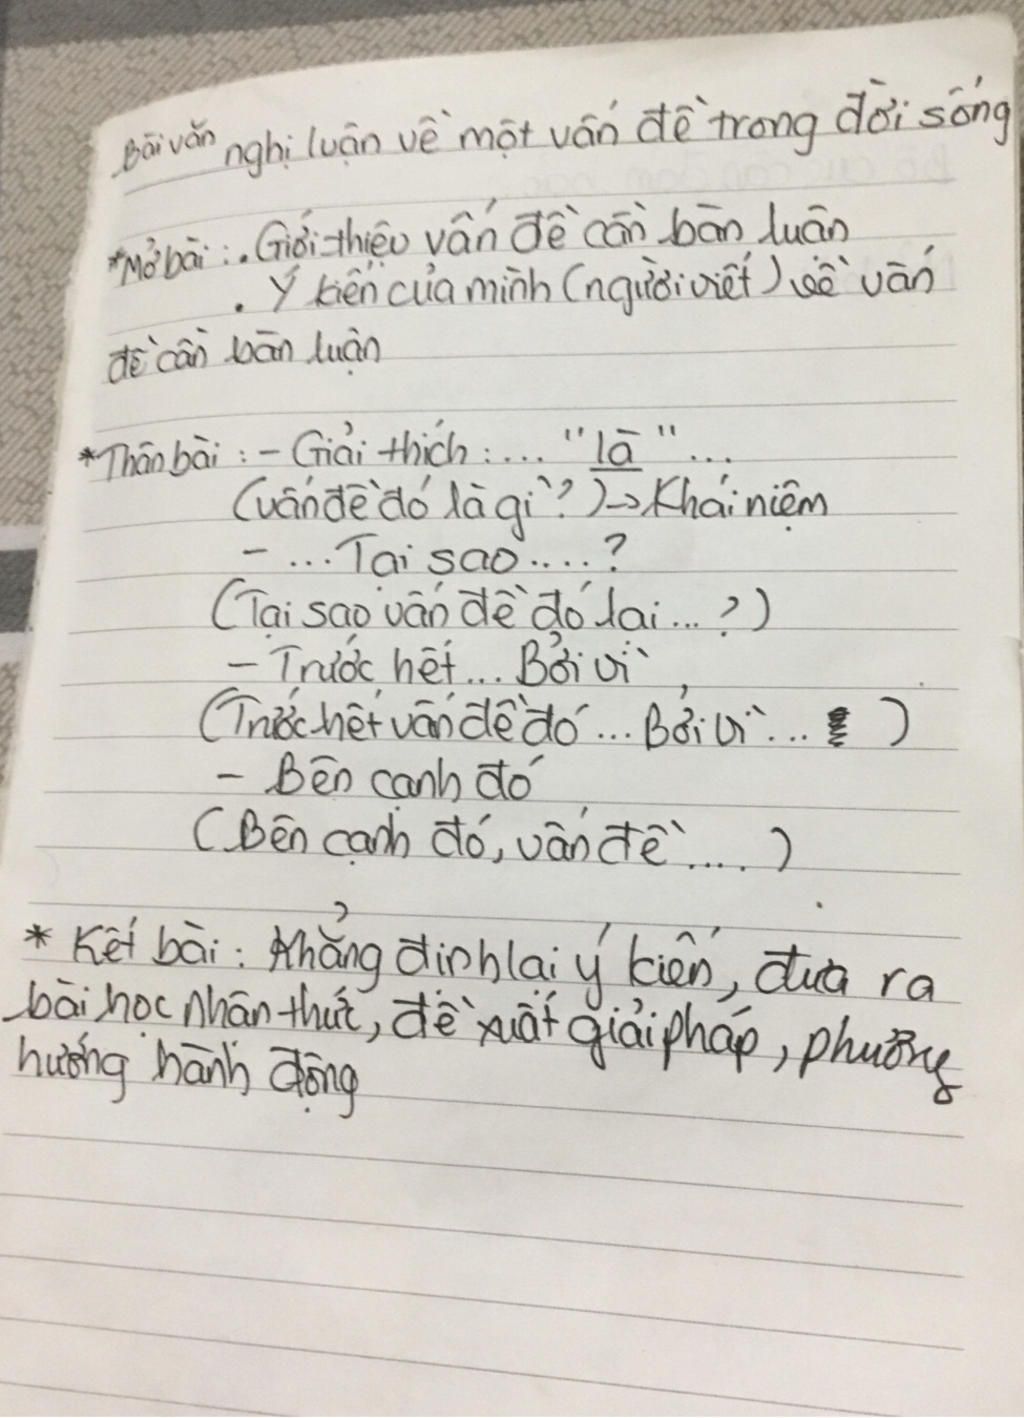 Bài văn nghị luận về một vấn đề trong đời sống
*Mở bài: . Giới thiệu vấn đề cần bàn luận
. Ý kiến của mình (người viết) về vấn
đề cần bàn luận
*Thân bài: - Giải thích: ... "là" ...
(vấn đề đó là gì?) → Khái niệm
- ... Tại sao ....?
(Tại sao vấn đề đó lại ...?)
- Trước hết ... Bởi vì
(Trước hết vấn đề đó ... Bởi vì ... )
- Bên cạnh đó
(Bên cạnh đó, vấn đề ....)
* Kết bài: Khẳng định lại ý kiến, đưa ra
bài học nhận thức, đề xuất giải pháp, phương
hướng hành động